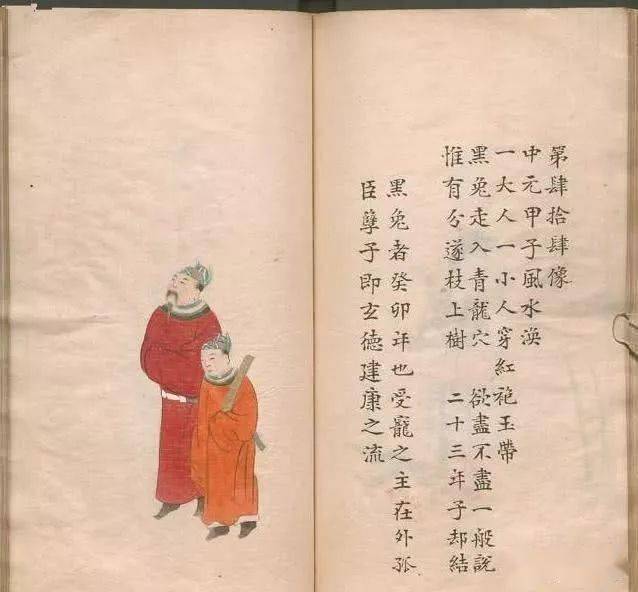 第肆拾肆像
中元甲子風水渙
一大人一小人穿紅袍玉帶
黑兔走入青龍穴 欲盡不盡一般說
惟有分遂枝上樹 二十三年子却結
黑兔者癸卯年也受寵之主在外孤
臣孽子即玄德建康之流